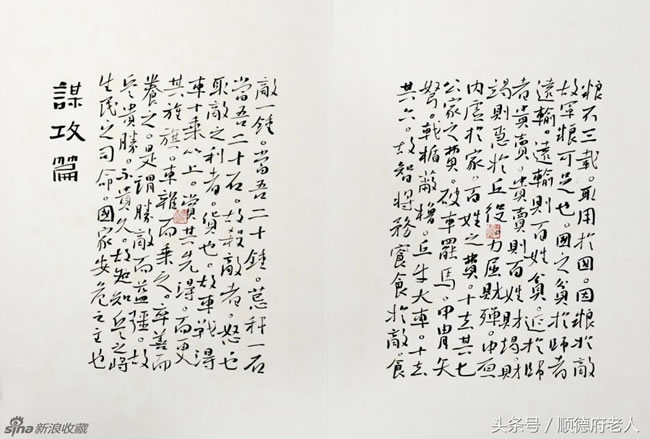 粮不三載。取用於國。因粮於敵
故軍粮可足也。國之貧於師者
遠輸。遠輸則百姓貧。近於師
者貴賣。貴賣則百姓財竭。財
竭則急於丘役。力屈財殫。中原
内虚於家。百姓之費。十去其七
公家之費。破車罷馬。甲胄矢
弩。戟楯蔽櫓。丘牛大車。十去
其六。故智將務食於敵。食
敵一鍾。當吾二十鍾。萁秆一石
當吾二十石。故殺敵者。怒也
取敵之利者。貨也。故車戰得
車十乘以上。賞其先得。而更
其旌旗。車雜而乘之。卒善而
養之。是謂勝敵而益强。故
兵貴勝。不貴久。故知兵之將
生民之司命。國家安危之主也
謀攻篇
sina新浪收藏
头条号/顺德府老人